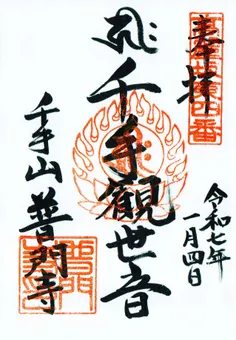 奉拝
令和七年
一月四日
千手観世音
千手山 普門寺